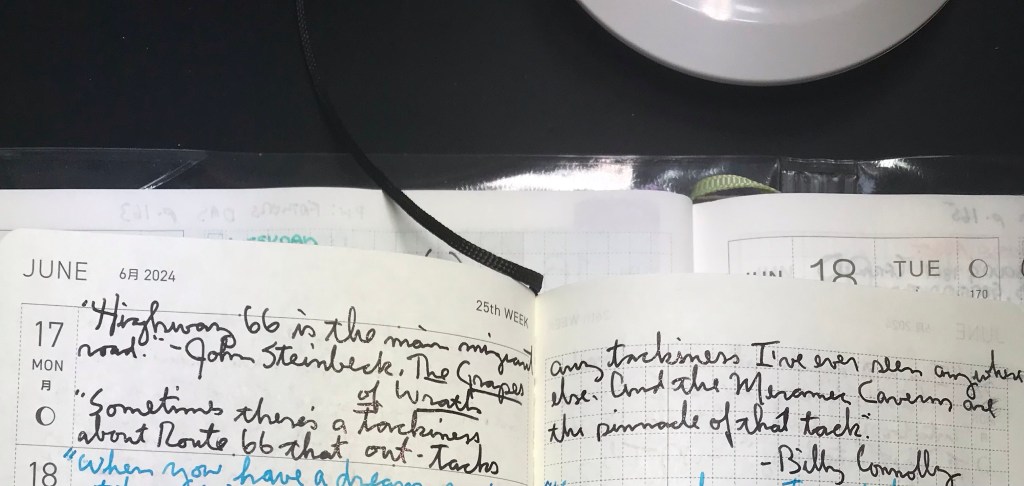 JUN 18 TUE
170
JUNE 6月 2024
25th WEEK
17
MON
月
"Highway 66 is the main migrant
road." - John Steinbeck, The Grapes
of Wrath
"Sometimes there's a tackiness
about Route 66 that out-tacks
18
"When you have a dream
any tackiness I've ever seen anywhere
else. And the Meramec Caverns are
the pinnacle of that tack."
- Billy Connolly